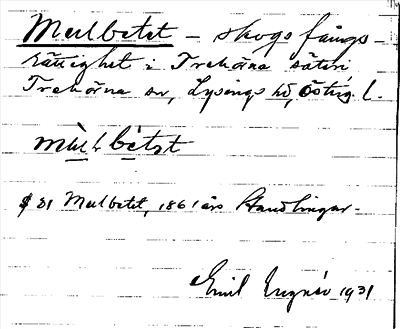 Mulbetet – skogsfångs-
rättighet i Trehörna säteri
Trehörna sn, Lysings hd, Östergl.
mùlbètət
§ 31 Mulbetet, 1861 års Handlingar.
Emil 1931